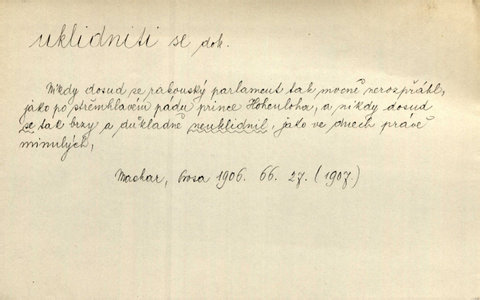 uklidniti se dok.
Nikdy dosud se rakouský parlament tak mocně nerozpřáhl,
jako po střemhlavém pádu prince Hohenloha, a nikdy dosud
se tak brzy a důkladně neuklidnil, jako ve dnech právě
minulých,
Machar, Prosa 1906. 66. 27. (1907.)